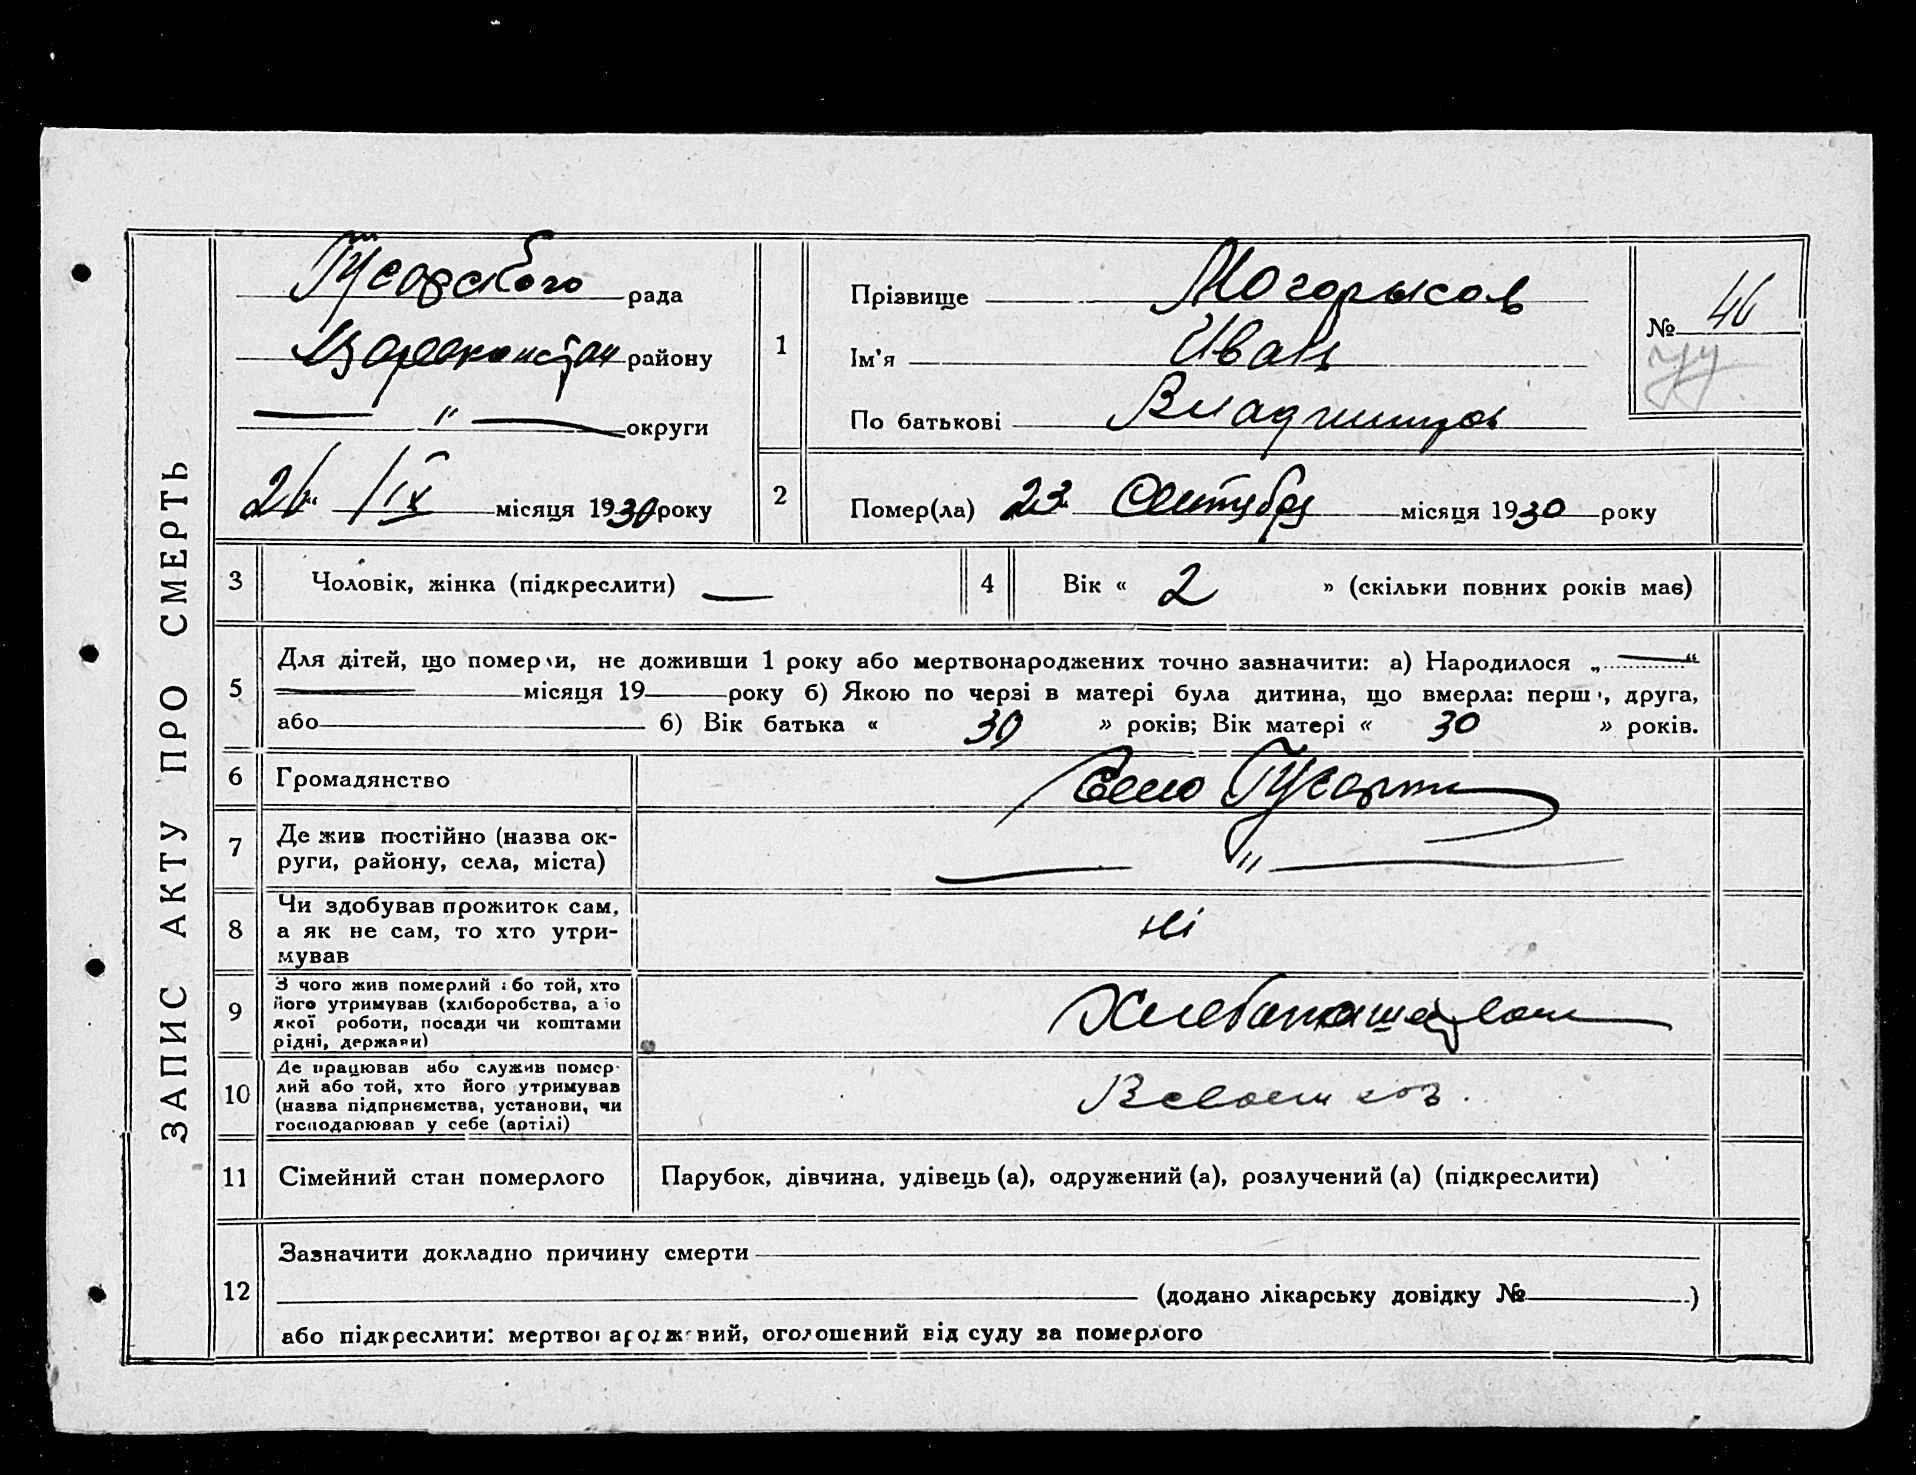 ЗАПИС АКТУ ПРО СМЕРТЬ
рада
району
— " — округи
26 / IX місяця 1930 року
1
Прізвище Могорысов
Ім'я Иван
По батькові
№ 46
2
Помер(ла) 23 Сентября місяця 1930 року
3
Чоловік, жінка (підкреслити) —
4
Вік « 2 » (скільки повних років має)
5
Для дітей, що померли, не доживши 1 року або мертвонароджених точно зазначити: а) Народилося „ — “
— місяця 19 року б) Якою по черзі в матері була дитина, що вмерла: перша, друга,
або 6) Вік батька « 30 » років; Вік матері « 30 » років.
6
Громадянство
Село Гусарки
7
Де жив постійно (назва ок-
руги, району, села, міста)
— " —
8
Чи здобував прожиток сам,
а як не сам, то хто утри-
мував
ні
9
З чого жив померлий або той, хто
його утримував (хліборобства, або
якої роботи, посади чи коштами
рідні, держави)
10
Де працював або служив помер-
лий або той, хто його утримував
(назва підприємства, установи, чи
господарював у себе (артілі)
В своем хоз.
11
Сімейний стан померлого
Парубок, дівчина, удівець (а), одружений (а), розлучений (а) (підкреслити)
12
Зазначити докладно причину смерти
(додано лікарську довідку № )
або підкреслити: мертвонароджений, оголошений від суду за померлого